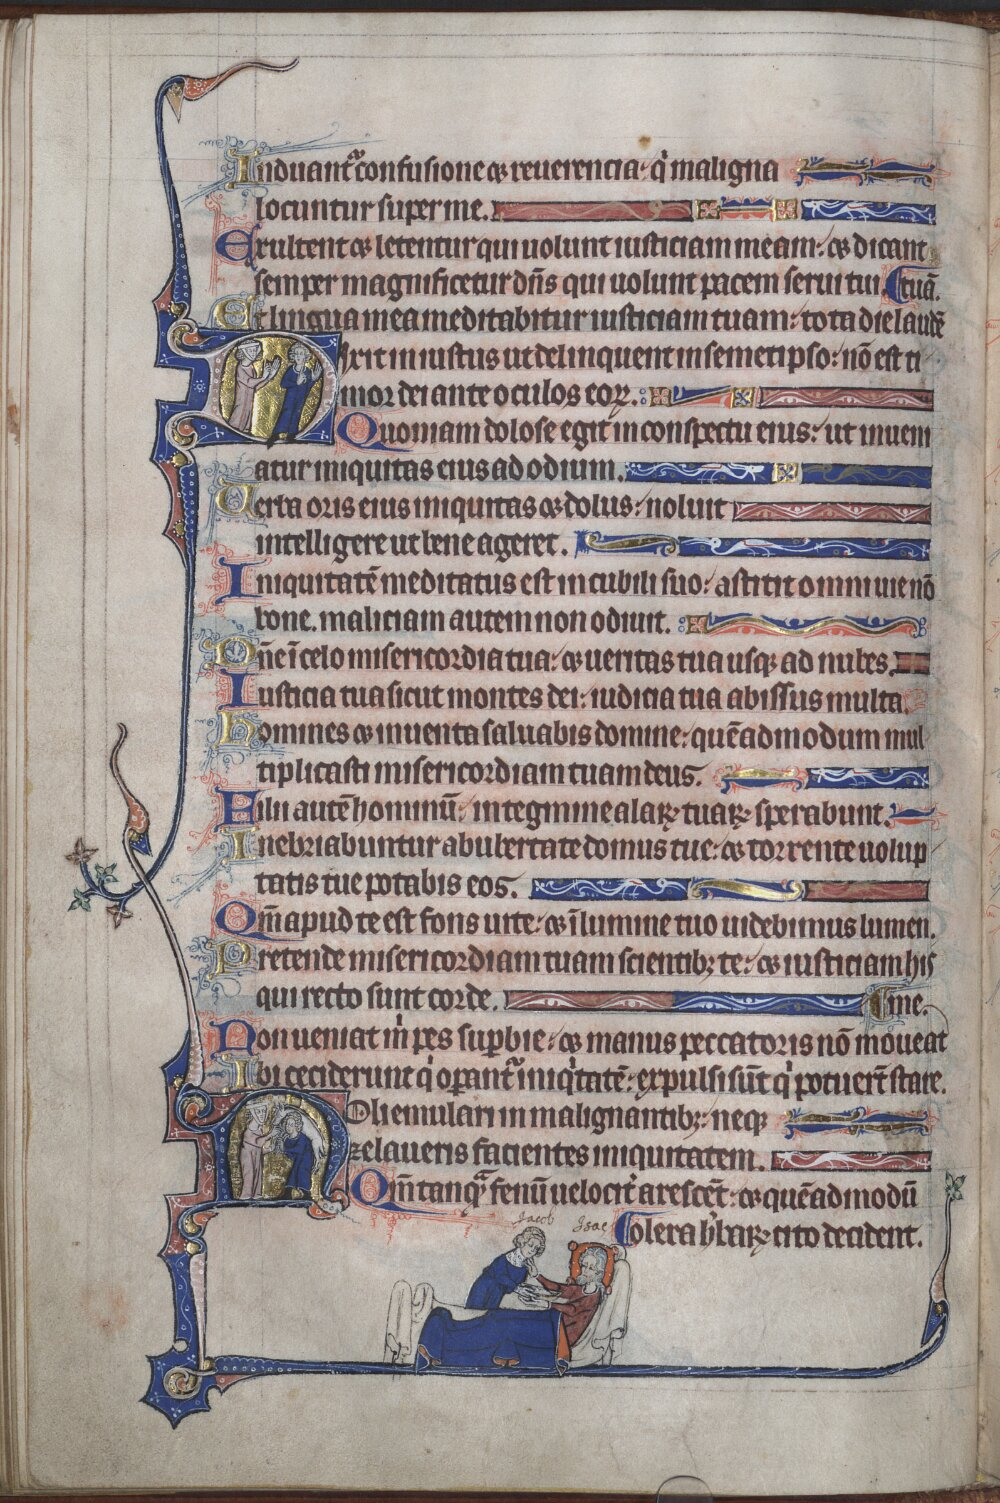 Induantᷓ confusione ⁊ reuerencia· qͥ maligna
locuntur super me.
Exultent ⁊ letentur qui uolunt iusticiam meam: ⁊ dicant
semper magnificetur dñs qui uolunt pacem serui tui. tuā.
Et lingua mea meditabitur iusticiam tuam: tota die laudē
Dixit iniustus ut delinquent in semetipso: nō est ti
mor dei ante oculos eoꝝ.
Quoniam dolose egit in conspectu eius: ut inueni
atur iniquitas eius ad odium.
Uerba oris eius iniquitas ⁊ dolus: noluit
intelligere ut bene ageret.
Iniquitatē meditatus est in cubili suo: astitit omni uie nō
bone. maliciam autem non odiuit.
Dñe ī celo misericordia tua: ⁊ ueritas tua usqꝫ ad nubes.
Iusticia tua sicut montes dei: iudicia tua abissus multa.
Homines ⁊ iumenta saluabis domine: quēadmodum mul
tiplicasti misericordiam tuam deus.
Filii autē hominū: in tegmine alaꝝ tuaꝝ sperabunt.
Inebriabuntur ab ubertate domus tue: ⁊ torrente uolup
tatis tue potabis eos.
Qm̄ apud te est fons uite: ⁊ ī lumine tuo uidebimus lumen.
Pretende misericordiam tuam scientibꝫ te: ⁊ iusticiam his
qui recto sunt corde. tine.
Non ueniat m̄ pes supbie: ⁊ manus peccatoris nō moueat
Ibi ceciderunt qͥ opantᷓ iniqͥtatē: expulsi sūt qͥ potuert̄ stare.
Noli emulari in malignantibꝫ: neqꝫ
zelaueris facientes iniquitatem.
Qm̄ tanqᷓ fenū uelocit͛ arescēt: ⁊ quēadmodū
olera h͛baꝝ cito decident.
Jacob Isac